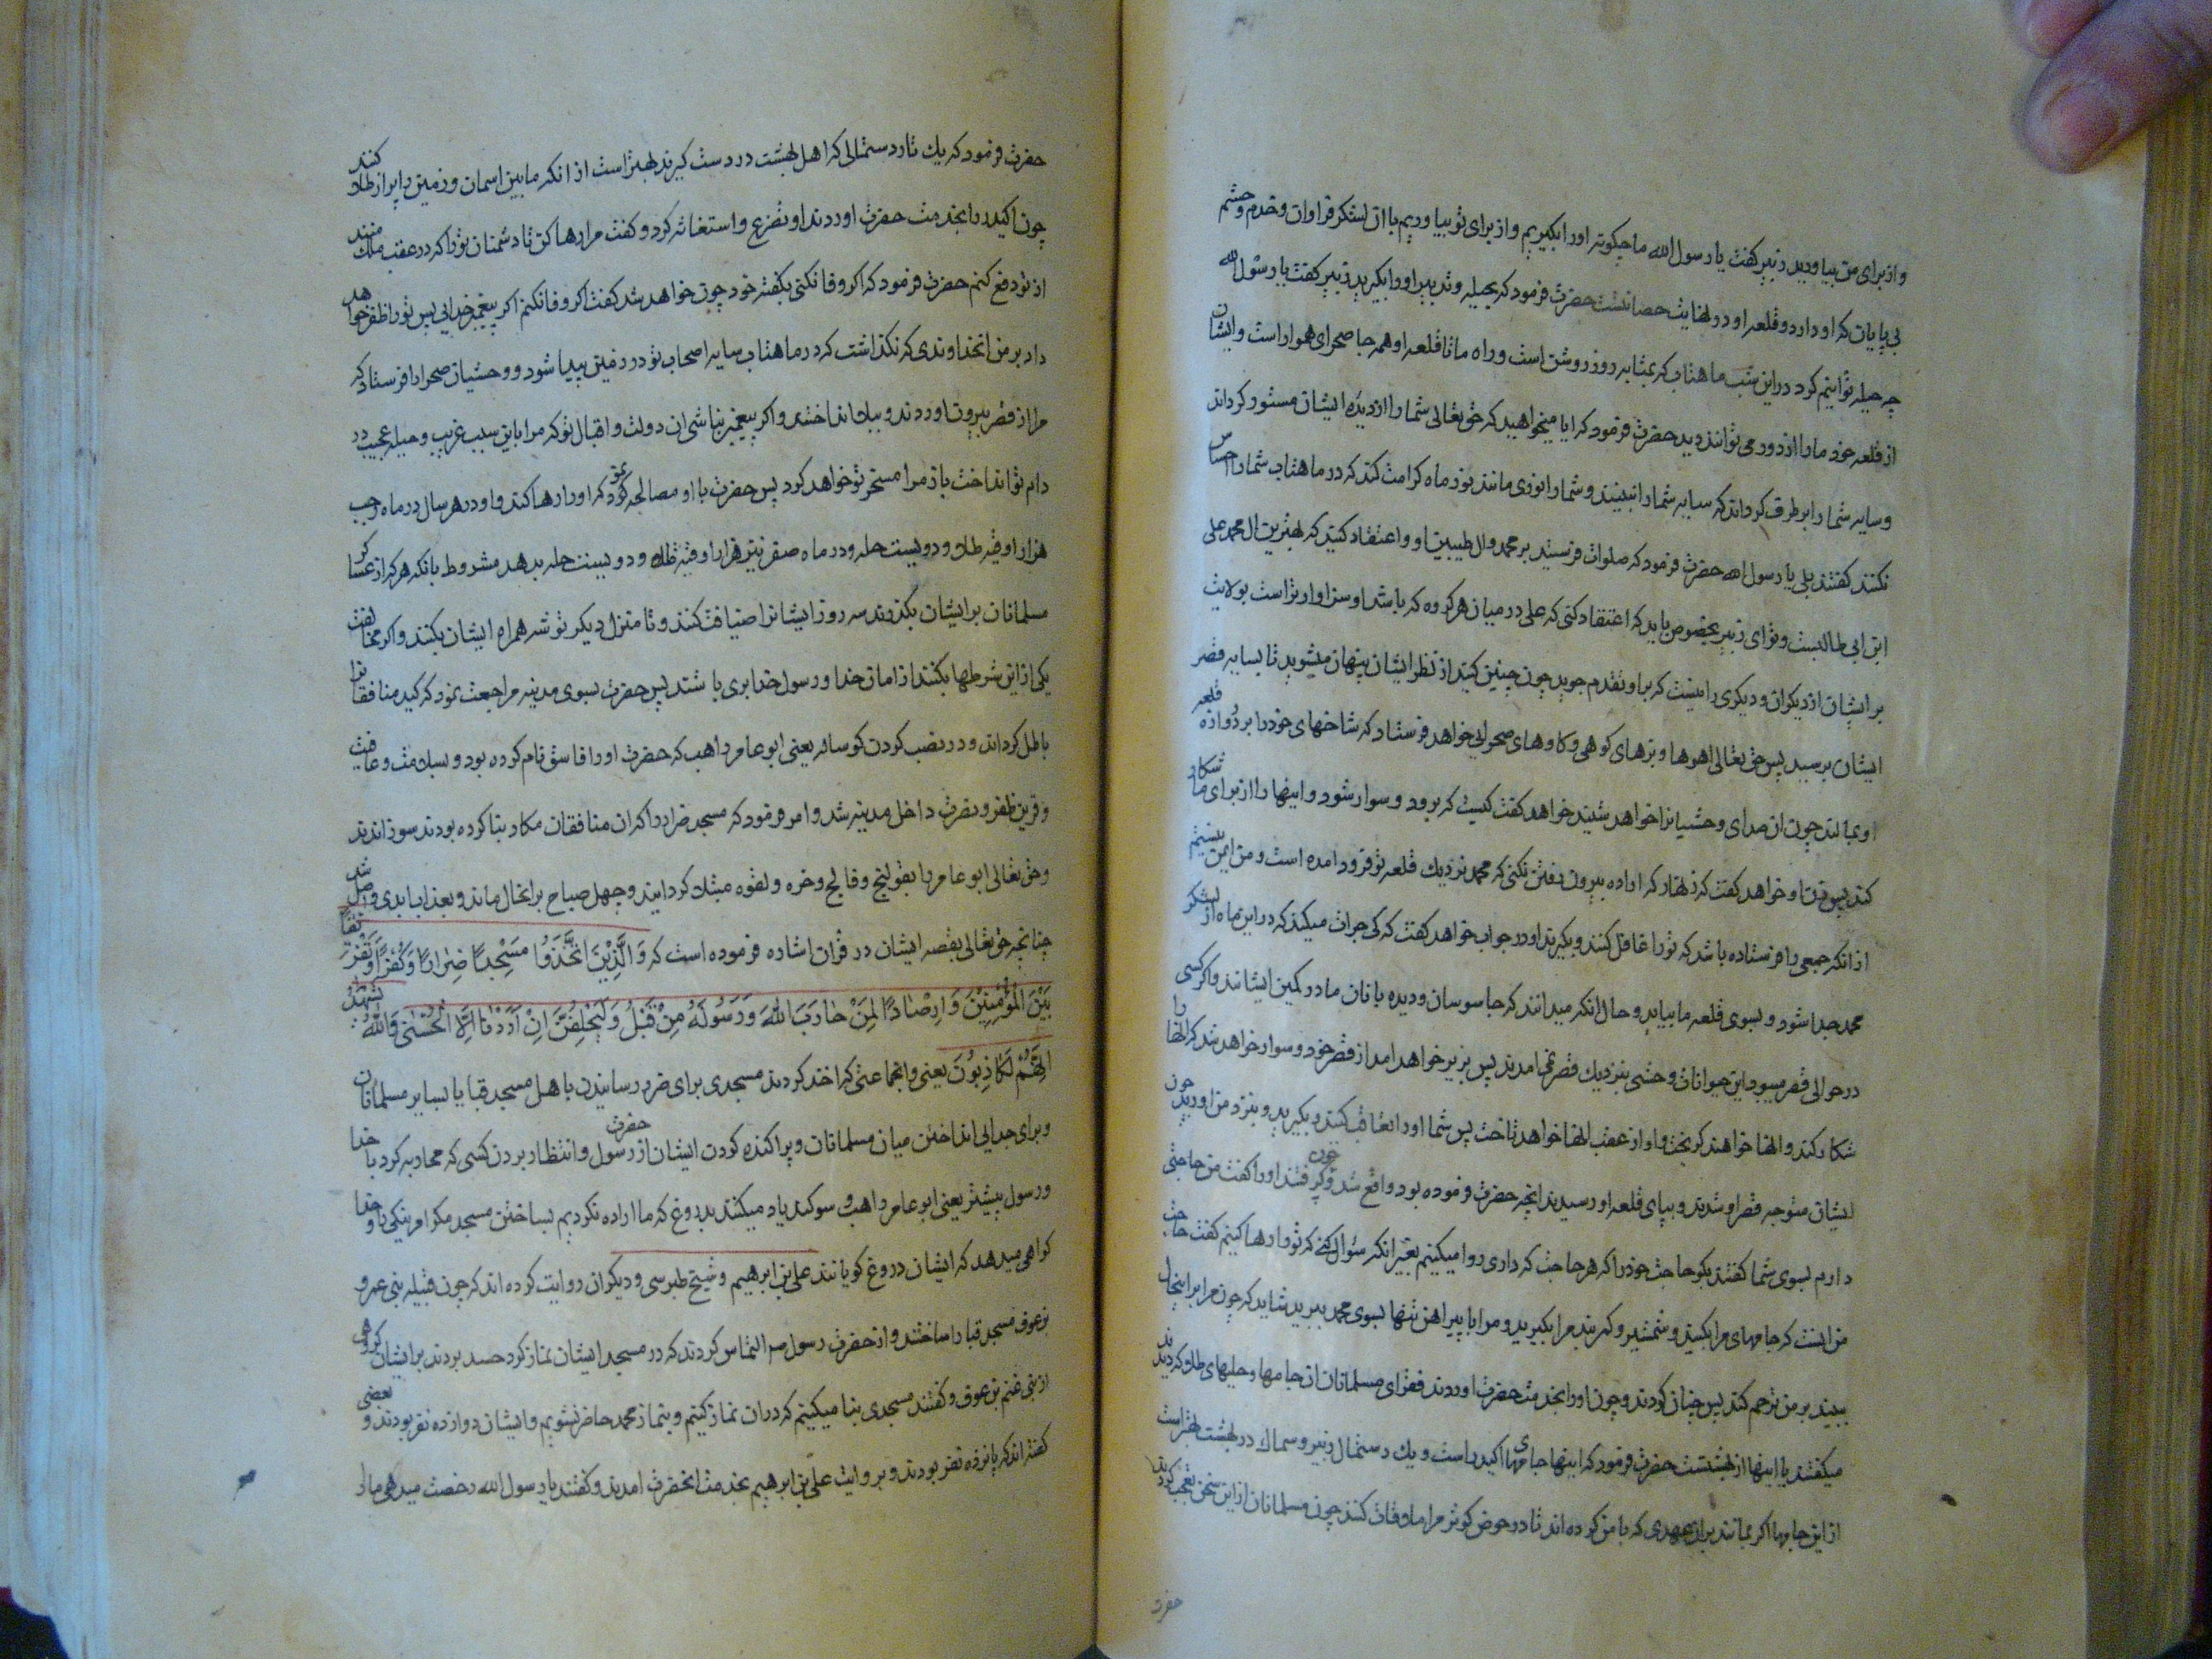 و از برای من بیاورید زبیر کفت یا رسول الله ما چکونه او را بکیریم و از برای تو بیاوریم با ان لشکر فراوان و خدم و حشم
بی پایان که او دارد و قلعه او در نهایت حصانتست حضرت فرمود که بحیله و تدبیر او را بکیرید زبیر کفت یا رسول الله
چه حیله توانیم کرد در این شب ماهتاب که بمثابه روز روشن است و راه ما تا قلعه او همه جا صحرای هموار است و ایشان
از قلعه خود ما را از دور می توانند دید حضرت فرمود که ایا میخواهید که حق تعالی شما را از دیده ایشان مستور کرداند
و سایه شما را برطرف کرداند که سایه شما را نبینند و شما را نوری مانند نور ماه کرامت کند که در ماهتاب شما را احساس
نکنند کفتند بلی یا رسول الله حضرت فرمود که صلوات فرستید بر محمد و ال طیبین او و اعتقاد کنید که بهترین ال محمد علی
ابن ابی طالبست و تو ای زبیر بخصوص باید که اعتقاد کنی که علی در میان هر کروه که باشد او سزاوارتر است بولایت
بر ایشان از دیکران و دیکری را نیست که بر او تقدم جوید چون چنین کنید از نظر ایشان پنهان میشوید تا بسایه قصر
ایشان برسید پس حق تعالی اهوها و بزهای کوهی و کاوهای صحرایی خواهد فرستاد که شاخهای خود را بر دروازه قلعه
او بمالند چون ان صدای وحشیانرا خواهد شنید خواهد کفت کیست که برود و سوار شود و اینها را از برای ما شکار
کند پس زن او خواهد کفت که زنهار که اراده بیرون رفتن نکنی که محمد نزدیک قلعه تو فرود امده است و من ایمن نیستم
از انکه جمعی را فرستاده باشد که تو را غافل کنند و بکیرند او در جواب خواهد کفت که کی جرات میکند که در این ماه از لشکر
محمد جدا شود و بسوی قلعه ما بیاید و حال انکه میدانند که جاسوسان و دیده بانان ما در کمین ایشانند و اکر کسی
در حوالی قصر میبود این حیوانات وحشی بنزدیک قصر نمی امدند پس بزیر خواهد امد از قصر خود و سوار خواهد شد که انها را
شکار کند و انها خواهند کریخت و او از عقب انها خواهد تاخت پس شما او را تعاقب کنید و بکیرید و بنزد من اورید چون
ایشان متوجه قصر او شدند و بپای قلعه او رسیدند انچه حضرت فرموده بود واقع شد و چون کرفتند او را کفت من حاجتی
دارم بسوی شما کفتند بکو حاجت خود را که هر حاجت که داری روا میکنیم بغیر انکه سئوال کنی که تو را رها کنیم کفت حاجت
من انست که جامهای مرا بکنید و شمشیر و کمربند مرا بکیرید و مرا با پیراهن تنها بسوی محمد ببرید شاید که چون مرا بر اینحال
ببیند بر من ترحم کند پس چنان کردند و چون او را بخدمت حضرت اوردند فقرای مسلمانان ان جامها و حلیهای طلا که دیدند
میکفتند یا اینها از بهشتست حضرت فرمود که اینها جامهای اکیدر است و یک دستمال زبیر و سماک در بهشت بهتر است
از این جامها اکر بمانند بر ان عهدی که با من کرده اند تا در حوض کوثر مرا ملاقات کنند چون مسلمانان از این سخن تعجب کردند
حضرت
حضرت فرمود که یک تار دستمالی که اهل بهشت در دست کیرند بهتر است از انکه مابین اسمان و زمین را پر از طلا کنند
چون اکیدر را بخدمت حضرت اوردند او تضرع و استغاثه کرد و کفت مرا رها کن تا دشمنان تو را که در عقب ملک منند
از تو دفع کنم حضرت فرمود که اکر وفا نکنی بکفته خود چون خواهد شد کفت اکر وفا نکنم اکر پیغمبر خدایی پس تو را ظفر خواهد
داد بر من انخداوندی که نکذاشت که در ماهتاب سایه اصحاب تو در زمین پیدا شود و وحشیان صحرا را فرستاد که
مرا از قصر بیرون اوردند و ببلا انداختند و اکر پیغمبر نباشی ان دولت و اقبال تو که مرا باین سبب غریب و حیله عجیب در
دام تو انداخت باز مرا مسخر تو خواهد کرد پس حضرت با او مصالحه نمود که او را رها کند و او در هر سال در ماه رجب
هزار اوقیه طلا و دویست حله و در ماه صفر نیز هزار اوقیه طلا و دویست حله بدهد مشروط بانکه هر که از عساکر
مسلمانان بر ایشان بکذرند سه روز ایشانرا ضیافت کنند و تا منزل دیکر توشه همراه ایشان بکنند و اکر مخالفت
یکی از این شرطها بکنند از امان خدا و رسول خدا بری باشند پس حضرت بسوی مدینه مراجعت نمود که کید منافقانرا
باطل کرداند و در نصب کردن کوساله یعنی ابو عامر راهب که حضرت او را فاسق نام کرده بود و بسلامت و عافیت
و قرین ظفر و نصرت داخل مدینه شد و امر فرمود که مسجد ضرار را که ان منافقان مکار بنا کرده بودند سوزاندند
و حق تعالی ابو عامر را بقولنج و فالج و خوره و لقوه مبتلا کردانید و چهل صباح بر انحال ماند و بعذاب ابدی واصل شد
چنانچه حق تعالی بقصه ایشان در قران اشاره فرموده است که وَالَّذِینَ اتَّخَذُوا مَسْجِدًا ضِرَارًا وَکُفْرًا وَتَفْرِیقًا
بَیْنَ الْمُؤْمِنِینَ وَاِرْصَادًا لِمَنْ حَارَبَ اللهَ وَرَسُولَهُ مِنْ قَبْلُ وَلَیَحْلِفُنَّ اِنْ اَرَدْنَا اِلَّا الْحُسْنٰی وَاللهُ یَشْهَدُ
اِنَّهُمْ لَکَاذِبُونَ یعنی و انجماعتی که اخذ کردند مسجدی برای ضرر رسانیدن باهل مسجد قبا یا بسایر مسلمانان
و برای جدایی انداختن میان مسلمانان و پراکنده کردن ایشان از حضرت رسول و انتظار بردن کسی که محاربه کرد با خدا
و رسول پیشتر یعنی ابو عامر راهب و سوکند یاد میکنند بدروغ که ما اراده نکردیم بساختن مسجد مکر امر نیکی را و خدا
کواهی میدهد که ایشان دروغ کویانند علی بن ابرهیم و شیخ طبرسی و دیکران روایت کرده اند که چون قبیله بنی عمرو
بن عوف مسجد قبا را ساختند و از حضرت رسول ص التماس کردند که در مسجد ایشان نماز کرد حسد بردند بر ایشان کروهی
از بنی غنم بن عوف و کفتند مسجدی بنا میکنیم که در ان نماز کنیم و بنماز محمد حاضر نشویم و ایشان دوازده نفر بودند و بعضی
کفته اند که پانزده نفر بودند و بروایت علی بن ابرهیم بخدمت انحضرت امدند و کفتند یا رسول الله رخصت میدهی ما را